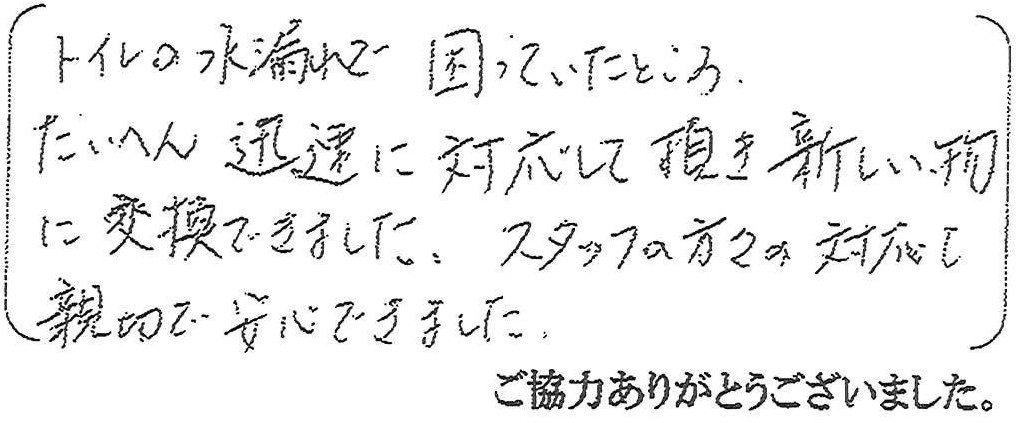 トイレの水漏れで困っていたところ、
たいへん迅速に対応して頂き新しい物
に変換できました。スタッフの方々の対応も
親切で安心できました。
ご協力ありがとうございました。